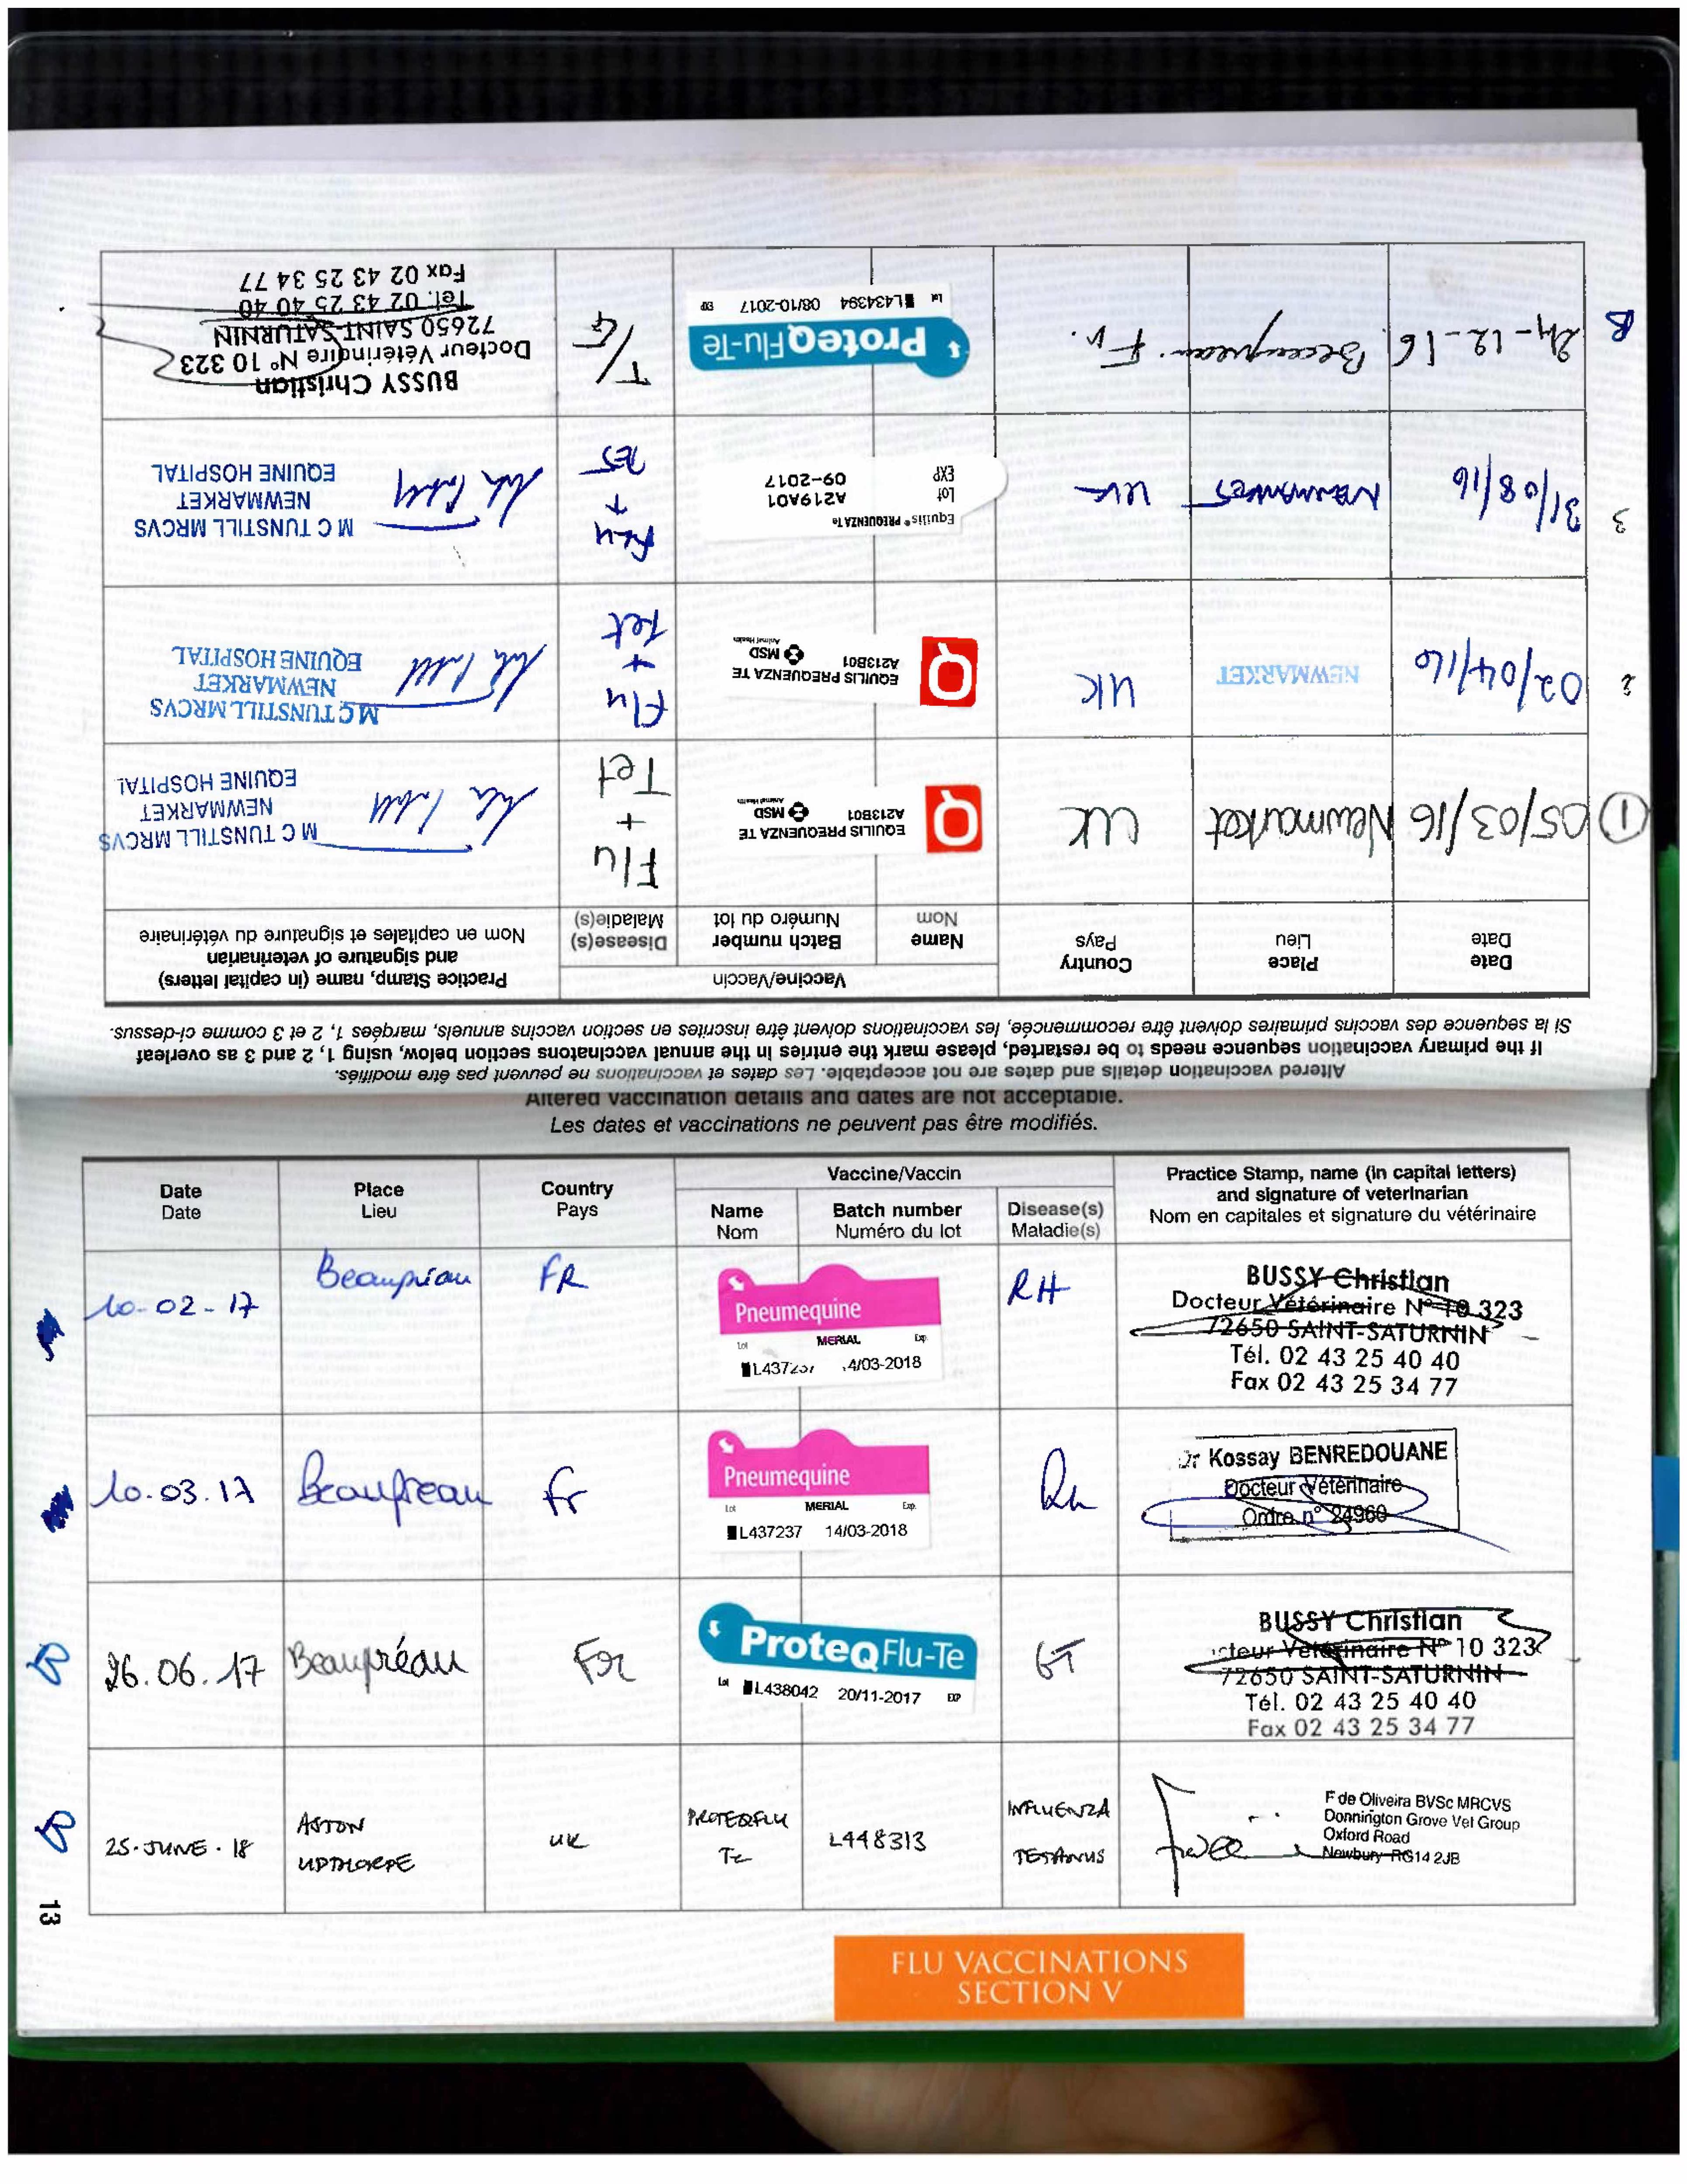 Altered vaccination details and dates are not acceptable. Les dates et vaccinations ne peuvent pas être modifiés.
If the primary vaccination sequence needs to be restarted, please mark the entries in the annual vaccinatons section below, using 1, 2 and 3 as overleaf
Si la sequence des vaccins primaires doivent être recommencée, les vaccinations doivent être inscrites en section vaccins annuels, marqées 1, 2 et 3 comme ci-dessus.
Date
Date
Place
Lieu
Country
Pays
Vaccine/Vaccin
Name
Nom
Batch number
Numéro du lot
Disease(s)
Maladie(s)
Practice Stamp, name (in capital letters)
and signature of veterinarian
Nom en capitales et signature du vétérinaire
1
05/03/16
Newmarket
UK
EQUILIS PREQUENZA TE
A213B01
MSD
Animal Health
Flu
+
Tet
M C TUNSTILL MRCVS
NEWMARKET
EQUINE HOSPITAL
2
02/04/16
NEWMARKET
UK
EQUILIS PREQUENZA TE
A213B01
MSD
Animal Health
Flu
+
Tet
M C TUNSTILL MRCVS
NEWMARKET
EQUINE HOSPITAL
3
31/08/16
UK
Equilis® PREQUENZA Te
Lot A219A01
EXP 09-2017
Flu
+
M C TUNSTILL MRCVS
NEWMARKET
EQUINE HOSPITAL
B
24-12-16
Beaupreau.
Fr.
ProteqFlu-Te
Lot L434394 08/10-2017 EXP
T/G
BUSSY Christian
Docteur Vétérinaire N° 10 323
72650 SAINT-SATURNIN
Tél. 02 43 25 40 40
Fax 02 43 25 34 77
Altered vaccination details and dates are not acceptable.
Les dates et vaccinations ne peuvent pas être modifiés.
Date
Date
Place
Lieu
Country
Pays
Vaccine/Vaccin
Name
Nom
Batch number
Numéro du lot
Disease(s)
Maladie(s)
Practice Stamp, name (in capital letters)
and signature of veterinarian
Nom en capitales et signature du vétérinaire
10-02-17
Beaupréau
FR
Pneumequine
Lot MERIAL Exp.
RH
BUSSY Christian
Docteur Vétérinaire N° 10 323
72650 SAINT-SATURNIN
Tél. 02 43 25 40 40
Fax 02 43 25 34 77
10.03.17
Beaupreau
Fr
Pneumequine
Lot MERIAL Exp.
L437237 14/03-2018
Rh
Dr Kossay BENREDOUANE
Docteur Vétérinaire
Ordre n° 24960
B
26.06.17
Beaupréau
Fr
ProteqFlu-Te
Lot L438042 20/11-2017 EXP
GT
BUSSY Christian
Vétérinaire N° 10 323
72650 SAINT-SATURNIN
Tél. 02 43 25 40 40
Fax 02 43 25 34 77
B
25.JUNE.18
ASTON
UPTHORPE
UK
PROTEQFLU
Te
L448313
INFLUENZA
TETANUS
F de Oliveira BVSc MRCVS
Donnington Grove Vet Group
Oxford Road
Newbury RG14 2JB
13
FLU VACCINATIONS
SECTION V